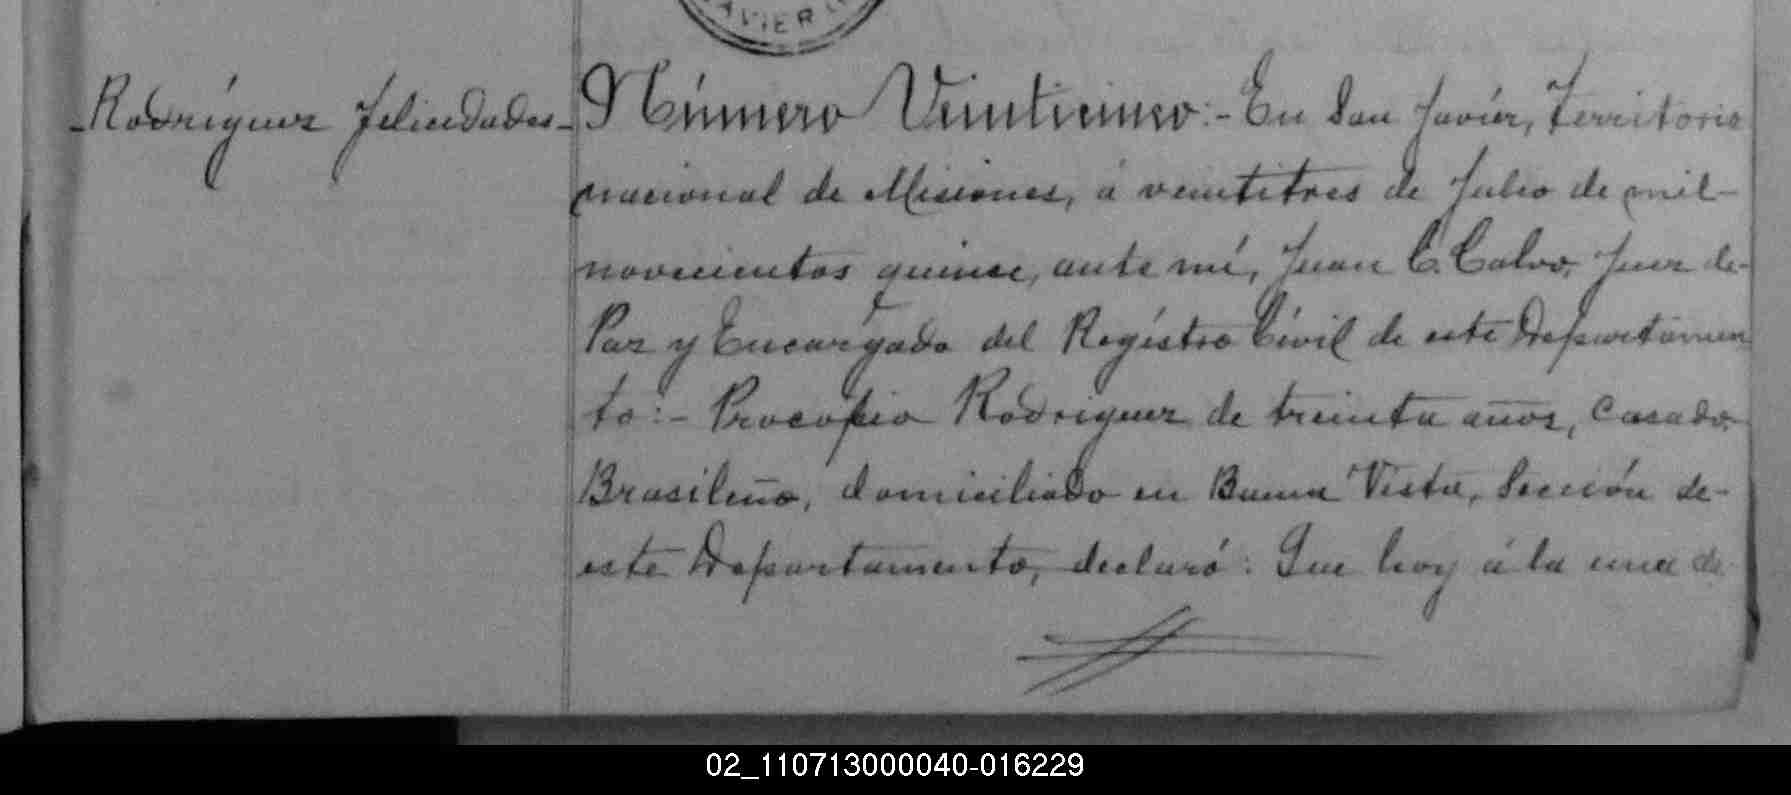 AVIER
-Rodríguez Felicidades-
Número Veinticinco:- En San Javiér, Territorio
nacional de Misiones, á veintitres de Julio de mil-
novecientos quince, ante mí, Juan C. Calvo, Juez de-
Paz y Encargado del Regístro Cívil de este Departamen
to:- Procopio Rodriguez de treinta años, casado,
Brasileño, domiciliado en Buena Vista, Sección de-
este Departamento, declaró: Que hoy á la una de
02_110713000040-016229